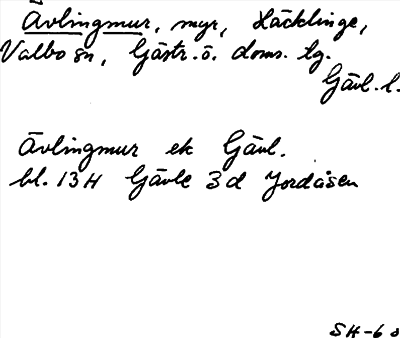 Ävlingmur, myr, Läcklinge,
Valbo sn, Gästr. ö. doms. tg.
Gävl. l.
Ävlingmur ek Gävl.
bl. 13H Gävle 3d Jordåsen
SH-6